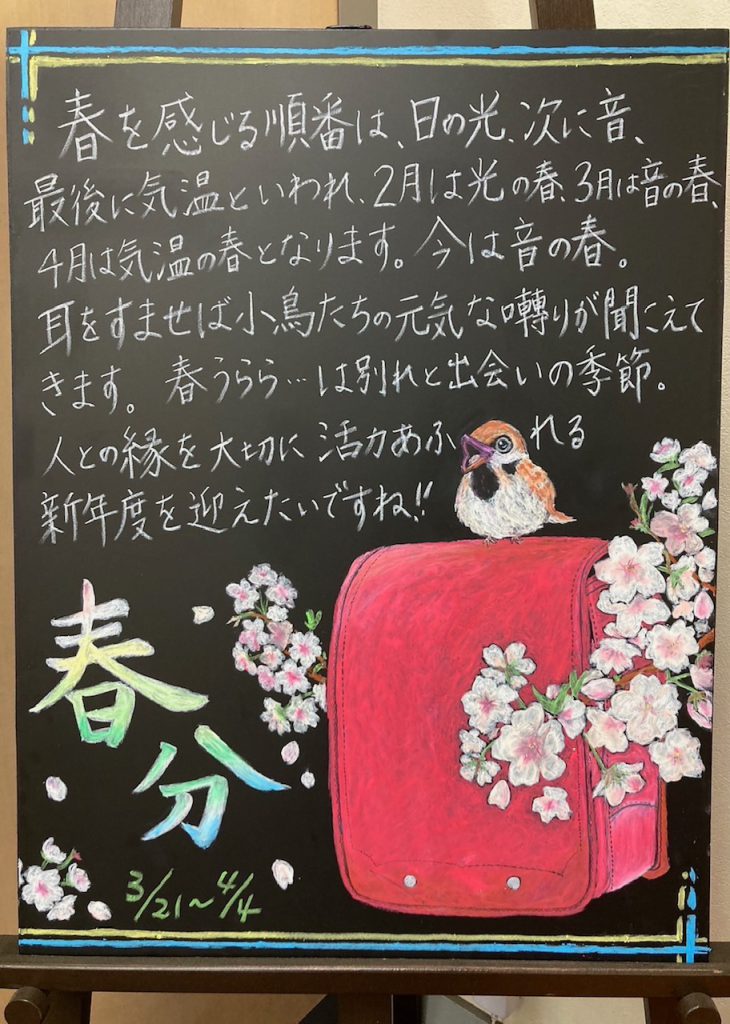 春を感じる順番は、日の光、次に音、
最後に気温といわれ、2月は光の春、3月は音の春、
4月は気温の春となります。今は音の春。
耳をすませば小鳥たちの元気な囀りが聞こえて
きます。春うらら…は別れと出会いの季節。
人との縁を大切に活力あふれる
新年度を迎えたいですね!!
春分
3/21～4/4